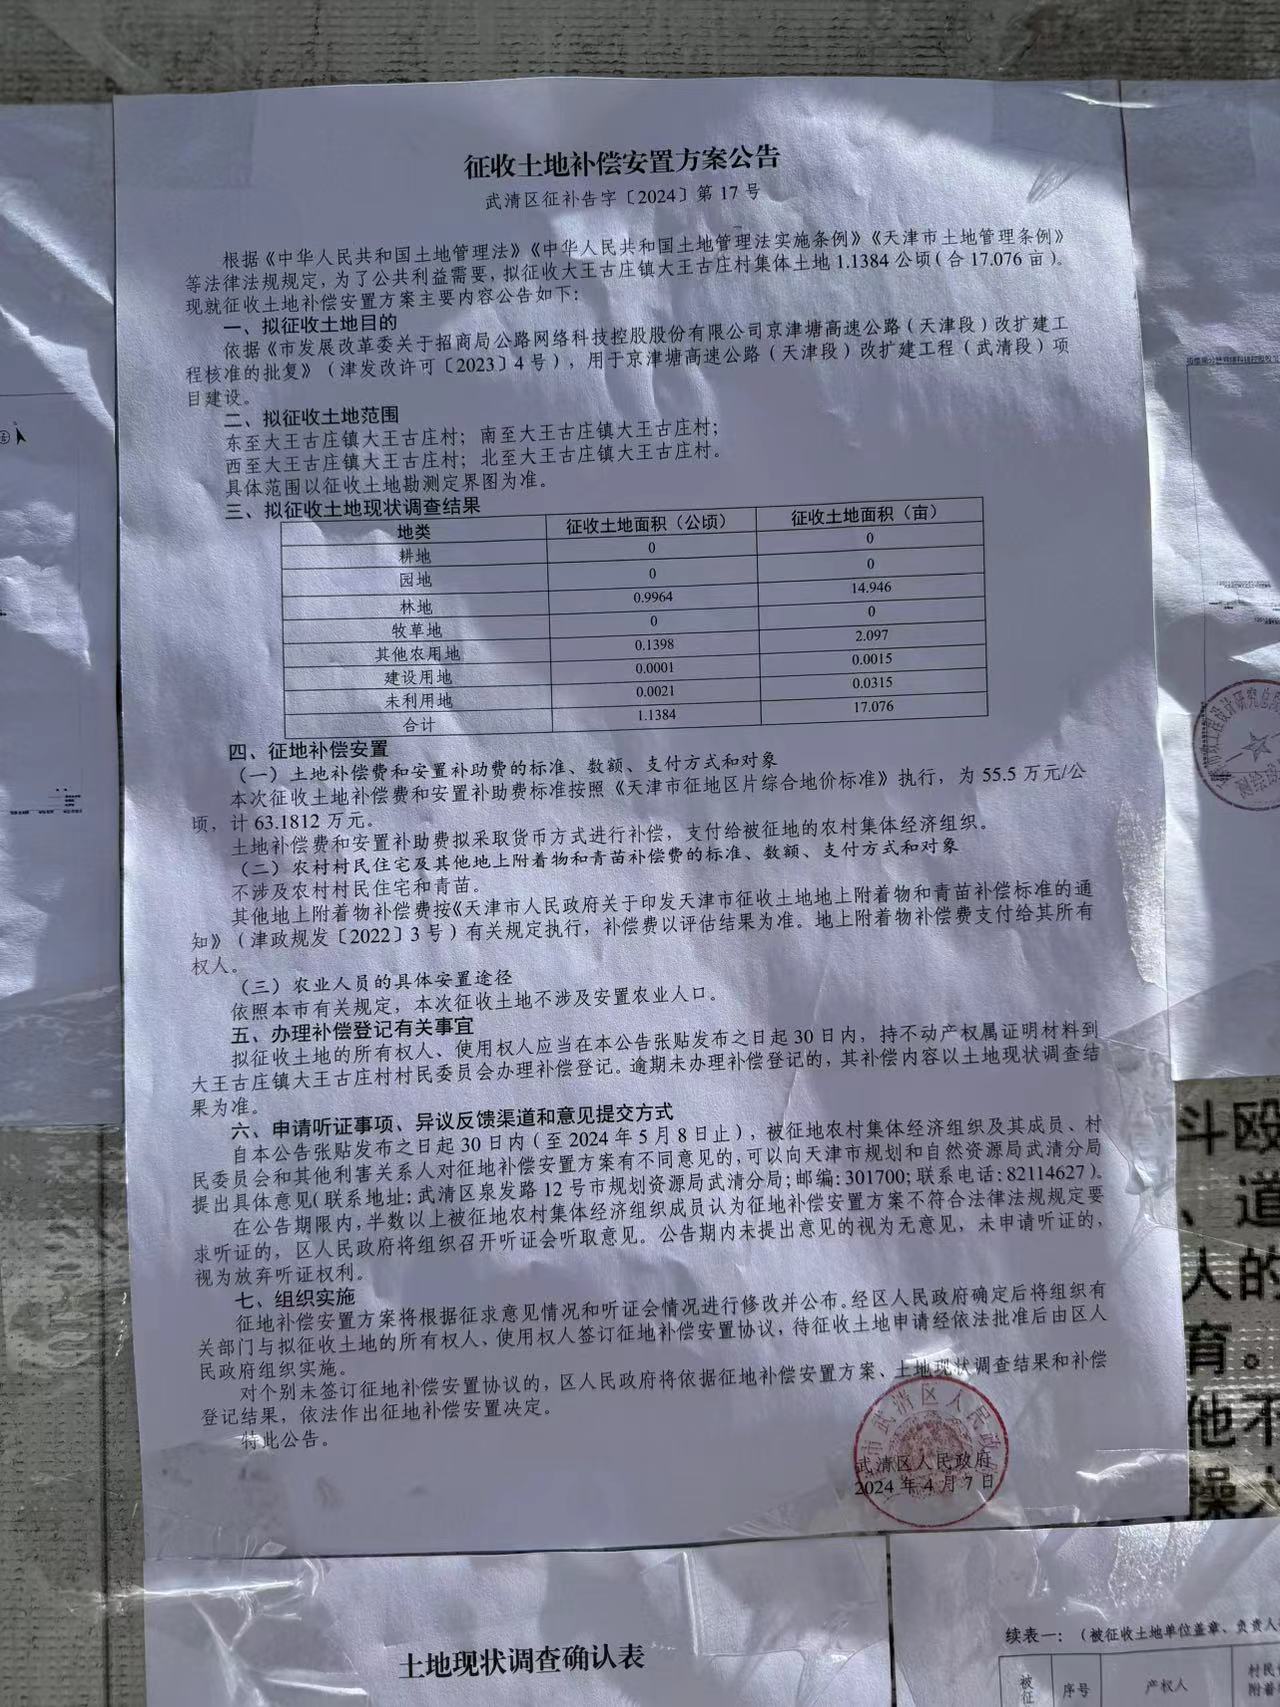 征收土地补偿安置方案公告
武清区征补告字〔2024〕第 17 号
根据《中华人民共和国土地管理法》《中华人民共和国土地管理法实施条例》《天津市土地管理条例》
等法律法规规定，为了公共利益需要，拟征收大王古庄镇大王古庄村集体土地1.1384公顷（合17.076亩）。
现就征收土地补偿安置方案主要内容公告如下：
一、拟征收土地目的
依据《市发展改革委关于招商局公路网络科技控股股份有限公司京津塘高速公路（天津段）改扩建工
程核准的批复》（津发改许可〔2023〕4号），用于京津塘高速公路（天津段）改扩建工程（武清段）项
目建设。
二、拟征收土地范围
东至大王古庄镇大王古庄村；南至大王古庄镇大王古庄村；
西至大王古庄镇大王古庄村；北至大王古庄镇大王古庄村。
具体范围以征收土地勘测定界图为准。
三、拟征收土地现状调查结果
地类 征收土地面积（公顷） 征收土地面积（亩）
耕地 0 0
园地 0 0
林地 0.9964 14.946
牧草地 0 0
其他农用地 0.1398 2.097
建设用地 0.0001 0.0015
未利用地 0.0021 0.0315
合计 1.1384 17.076
四、征地补偿安置
（一）土地补偿费和安置补助费的标准、数额、支付方式和对象
本次征收土地补偿费和安置补助费标准按照《天津市征地区片综合地价标准》执行，为 55.5 万元/公
顷，计 63.1812 万元。
土地补偿费和安置补助费拟采取货币方式进行补偿，支付给被征地的农村集体经济组织。
（二）农村村民住宅及其他地上附着物和青苗补偿费的标准、数额、支付方式和对象
不涉及农村村民住宅和青苗。
其他地上附着物补偿费按《天津市人民政府关于印发天津市征收土地地上附着物和青苗补偿标准的通
知》（津政规发〔2022〕3号）有关规定执行，补偿费以评估结果为准。地上附着物补偿费支付给其所有
权人。
（三）农业人员的具体安置途径
依照本市有关规定，本次征收土地不涉及安置农业人口。
五、办理补偿登记有关事宜
拟征收土地的所有权人、使用权人应当在本公告张贴发布之日起 30 日内，持不动产权属证明材料到
大王古庄镇大王古庄村村民委员会办理补偿登记。逾期未办理补偿登记的，其补偿内容以土地现状调查结
果为准。
六、申请听证事项、异议反馈渠道和意见提交方式
自本公告张贴发布之日起30日内（至 2024 年 5 月 8 日止），被征地农村集体经济组织及其成员、村
民委员会和其他利害关系人对征地补偿安置方案有不同意见的，可以向天津市规划和自然资源局武清分局
提出具体意见（联系地址：武清区泉发路 12 号市规划资源局武清分局；邮编：301700；联系电话：82114627）。
在公告期限内，半数以上被征地农村集体经济组织成员认为征地补偿安置方案不符合法律法规规定要
求听证的，区人民政府将组织召开听证会听取意见。公告期内未提出意见的视为无意见，未申请听证的，
视为放弃听证权利。
七、组织实施
征地补偿安置方案将根据征求意见情况和听证会情况进行修改并公布。经区人民政府确定后将组织有
关部门与拟征收土地的所有权人、使用权人签订征地补偿安置协议，待征收土地申请经依法批准后由区人
民政府组织实施。
对个别未签订征地补偿安置协议的，区人民政府将依据征地补偿安置方案、土地现状调查结果和补偿
登记结果，依法作出征地补偿安置决定。
特此公告。
武清区人民政府
2024 年 4 月 7 日
土地现状调查确认表
续表一：（被征收土地单位盖章、负责人
被征 序号 产权人 村民
附着
斗殴
、道
人的
育。
他不
操